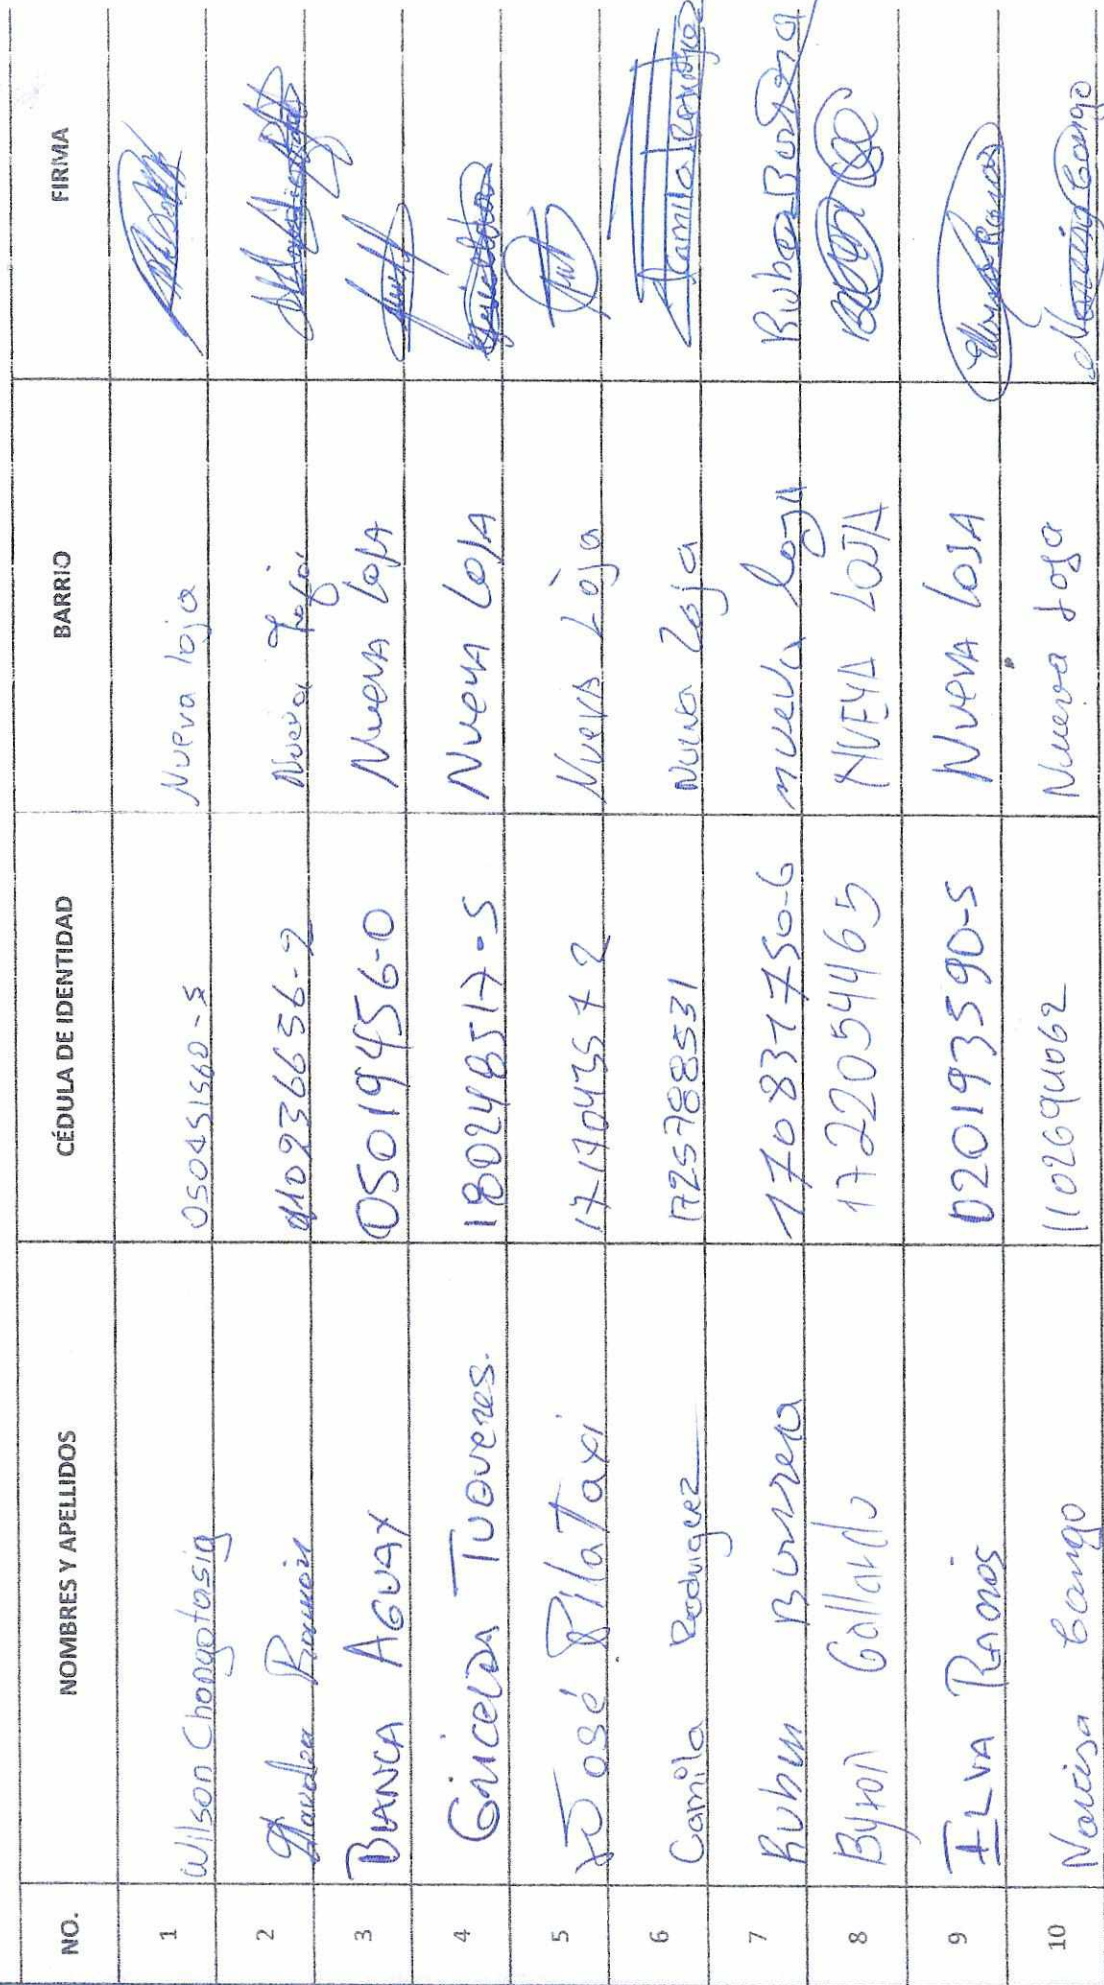 NO. NOMBRES Y APELLIDOS CÉDULA DE IDENTIDAD BARRIO FIRMA
1 Wilson Chongotasig 050451560-5 Nueva loja
2 Nueva Loja
3 BLANCA AGUAY 05019456-0 Nueva LoJA
4 Gricelda TUQUERES. 180248517-5 Nueva LOJA
5 José PilaTaxi 1717043572 Nueva Loja
6 Camila Rodriguez 1725788531 Nueva Loja Camila Rodriguez
7 Ruben Burrera 170831750-6 nueva loja
8 Byron Gallardo 1722054465 NUEVA LOJA
9 ELVA RAMOS 020193590-5 Nueva LOJA
10 Narcisa Cango 1102694062 Nueva Loja Narcisa Cango